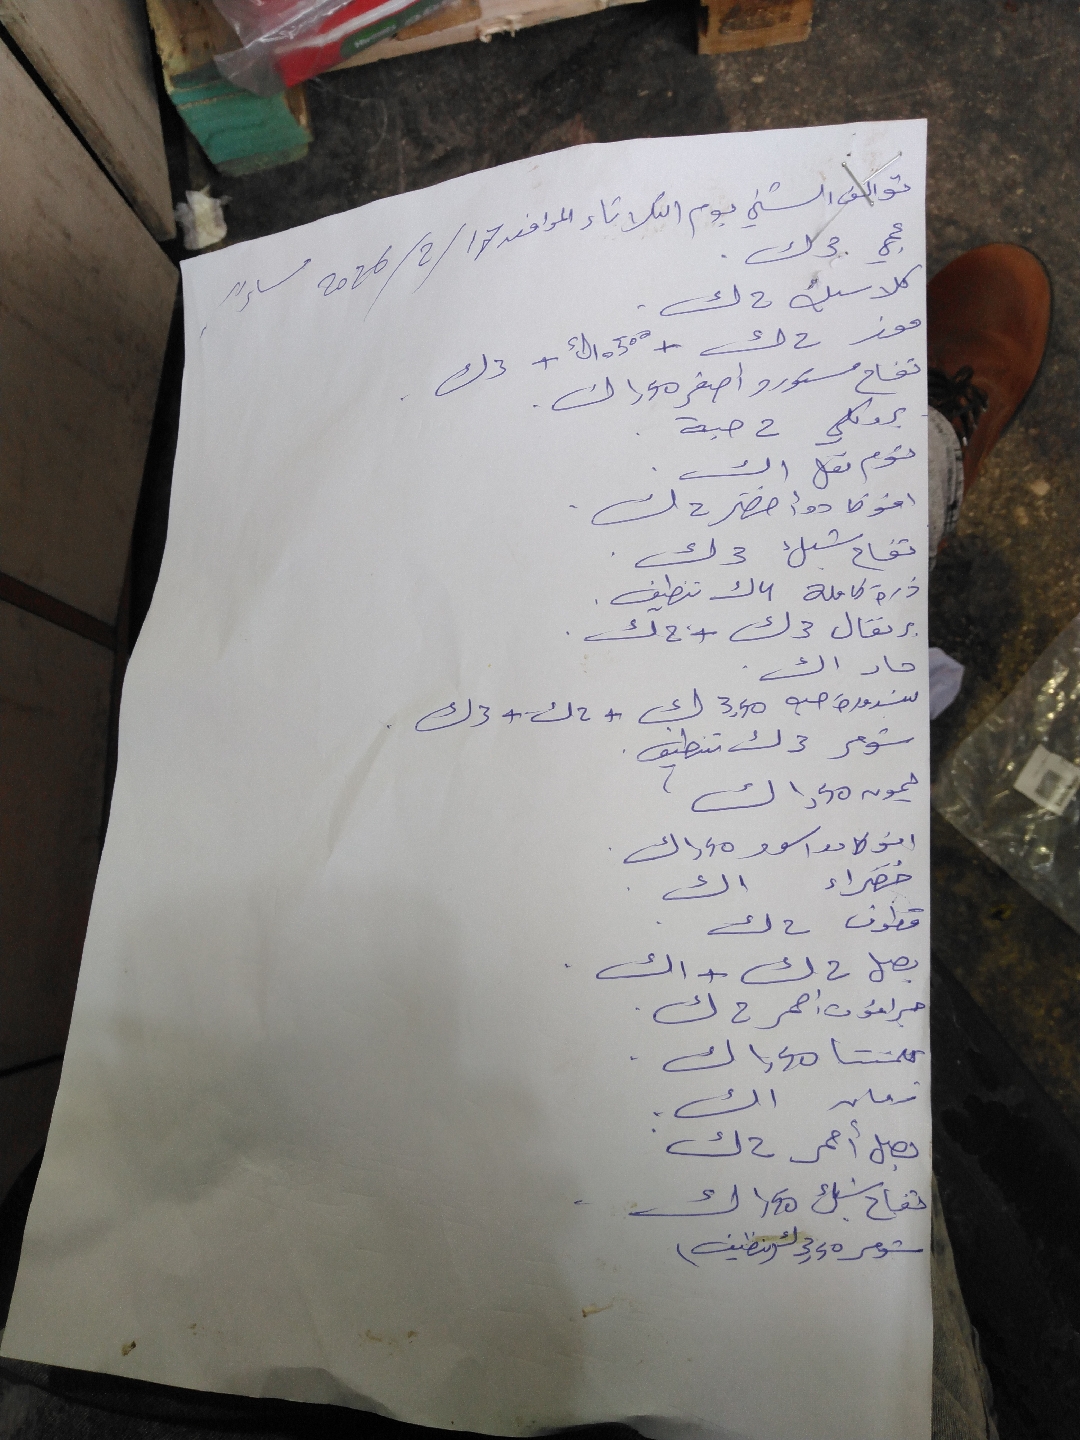 توالف الشني يوم الثلاثاء الموافق 17/2/2026 مساءً
عجمي 3ك.
كلاسيك 2ك.
موز 2ك + 500و1ك + 3ك.
تفاح سكورو أصفر 1,50ك.
بروكلي 2 حبة.
ثوم تقل 1ك.
افوكادو أخضر 2ك.
تفاح شبل 3ك.
ذرة كاملة 4ك تنظيف.
برتقال 3ك + 2ك.
حار 1ك.
بندورة حبه 3,50ك + 2ك + 3ك.
شومر 3ك تنظيف.
ليمون 1,50ك
افوكادو اسود 1,50ك.
خضراء 1ك.
قطوف 2ك.
بصل 2ك + 1ك.
أحمر 2ك.
كلمنتينا 1,50ك.
1ك.
بصل أحمر 2ك.
تفاح شبل 1,50ك.
شومر 3,50ك (تنظيف)